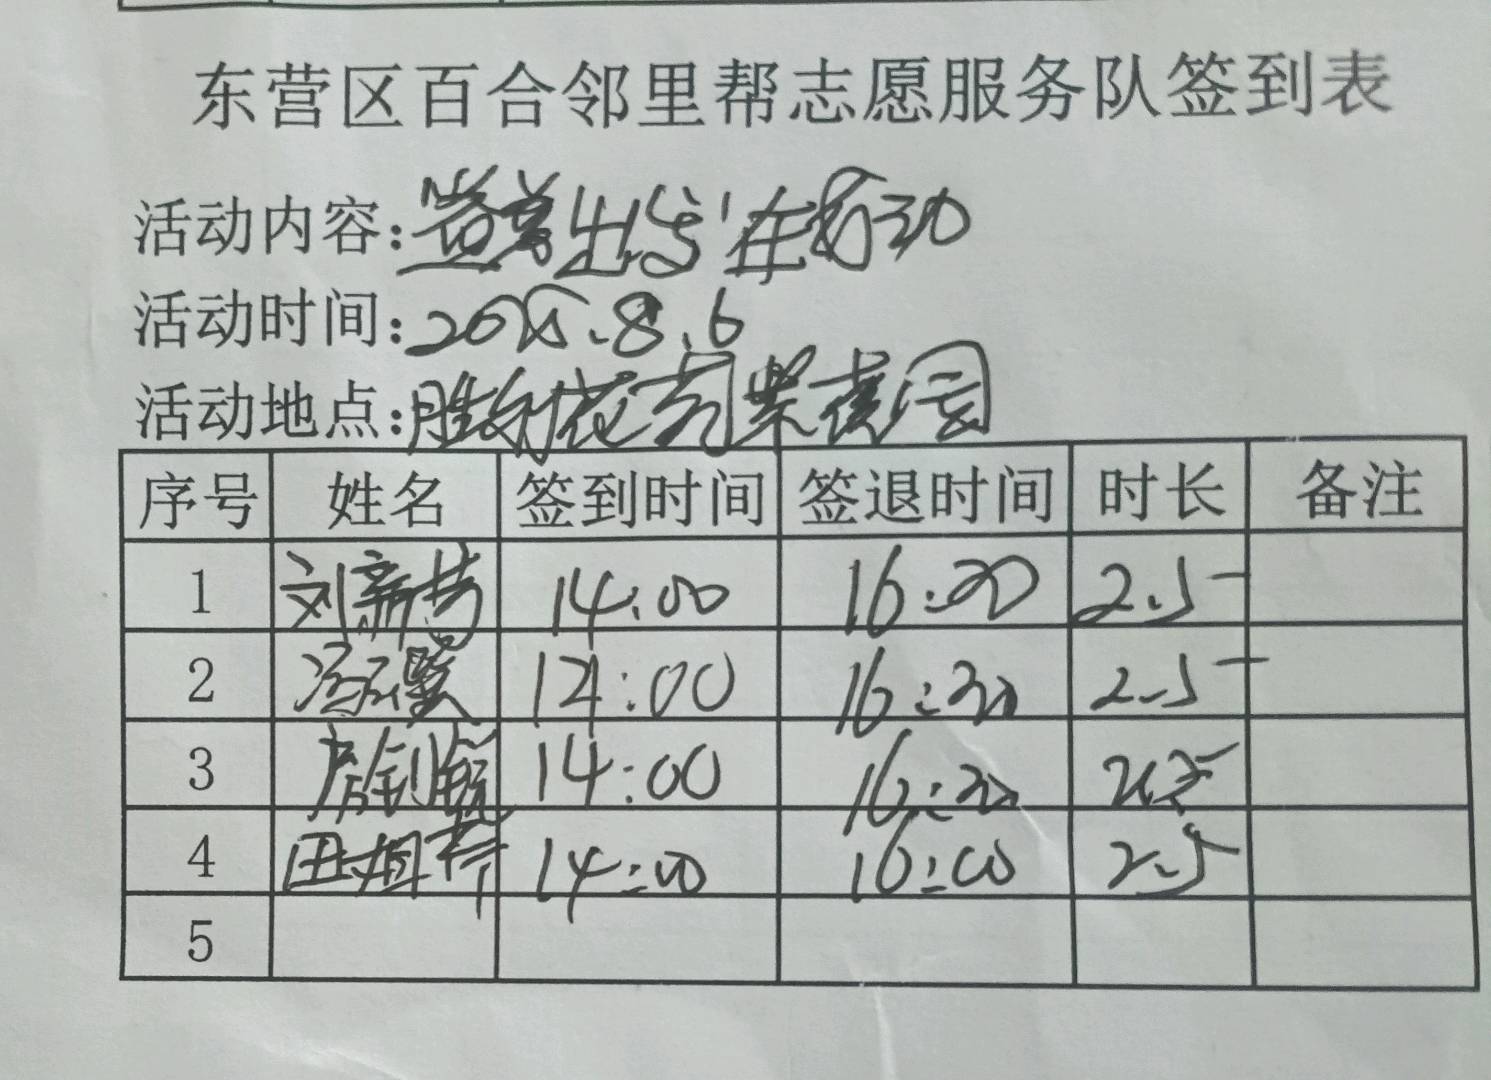 东营区百合邻里帮志愿服务队签到表
活动内容:出发在行动
活动时间:2025.8.6
活动地点:胜利花
序号 姓名 签到时间 签退时间 时长 备注
1 刘 14:00 16: 2.5
2 14:00 16:30 2.5
3 14:00 16:30 2.5
4 田 14:00 16:00 2.5
5